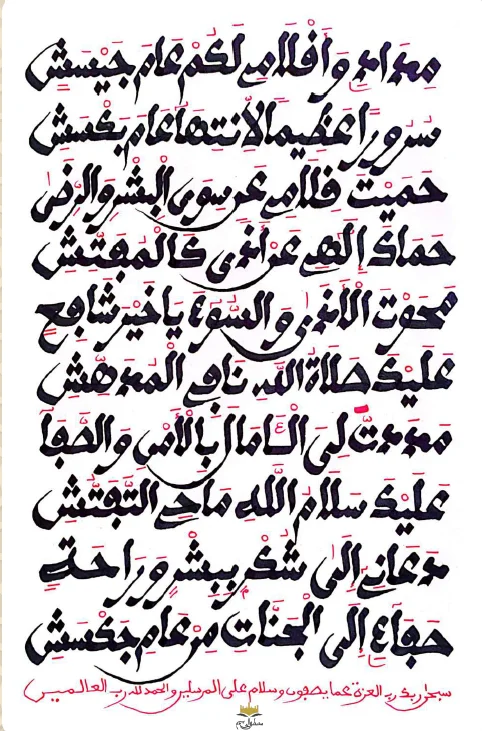 مدادي وأقلامي لكم عام جيسش
سرورا عظيما لانتها عام بكسش
حميت قلامي عن سوى البشر والرضى
حماك إلهي عن أذى كالمفتش
محوت الأذى والسوء يا خير شافع
عليك صلاة الله نافي المدهش
مددت لي الآمال بالأمن والصفا
عليك سلام الله ماحي التفتش
دعاني إلى شكر ببشر وراحة
صفاء إلى الجنات من عام جكسش
سبحن ربك رب العزة عما يصفون وسلام على المرسلين والحمد لله رب العالمين